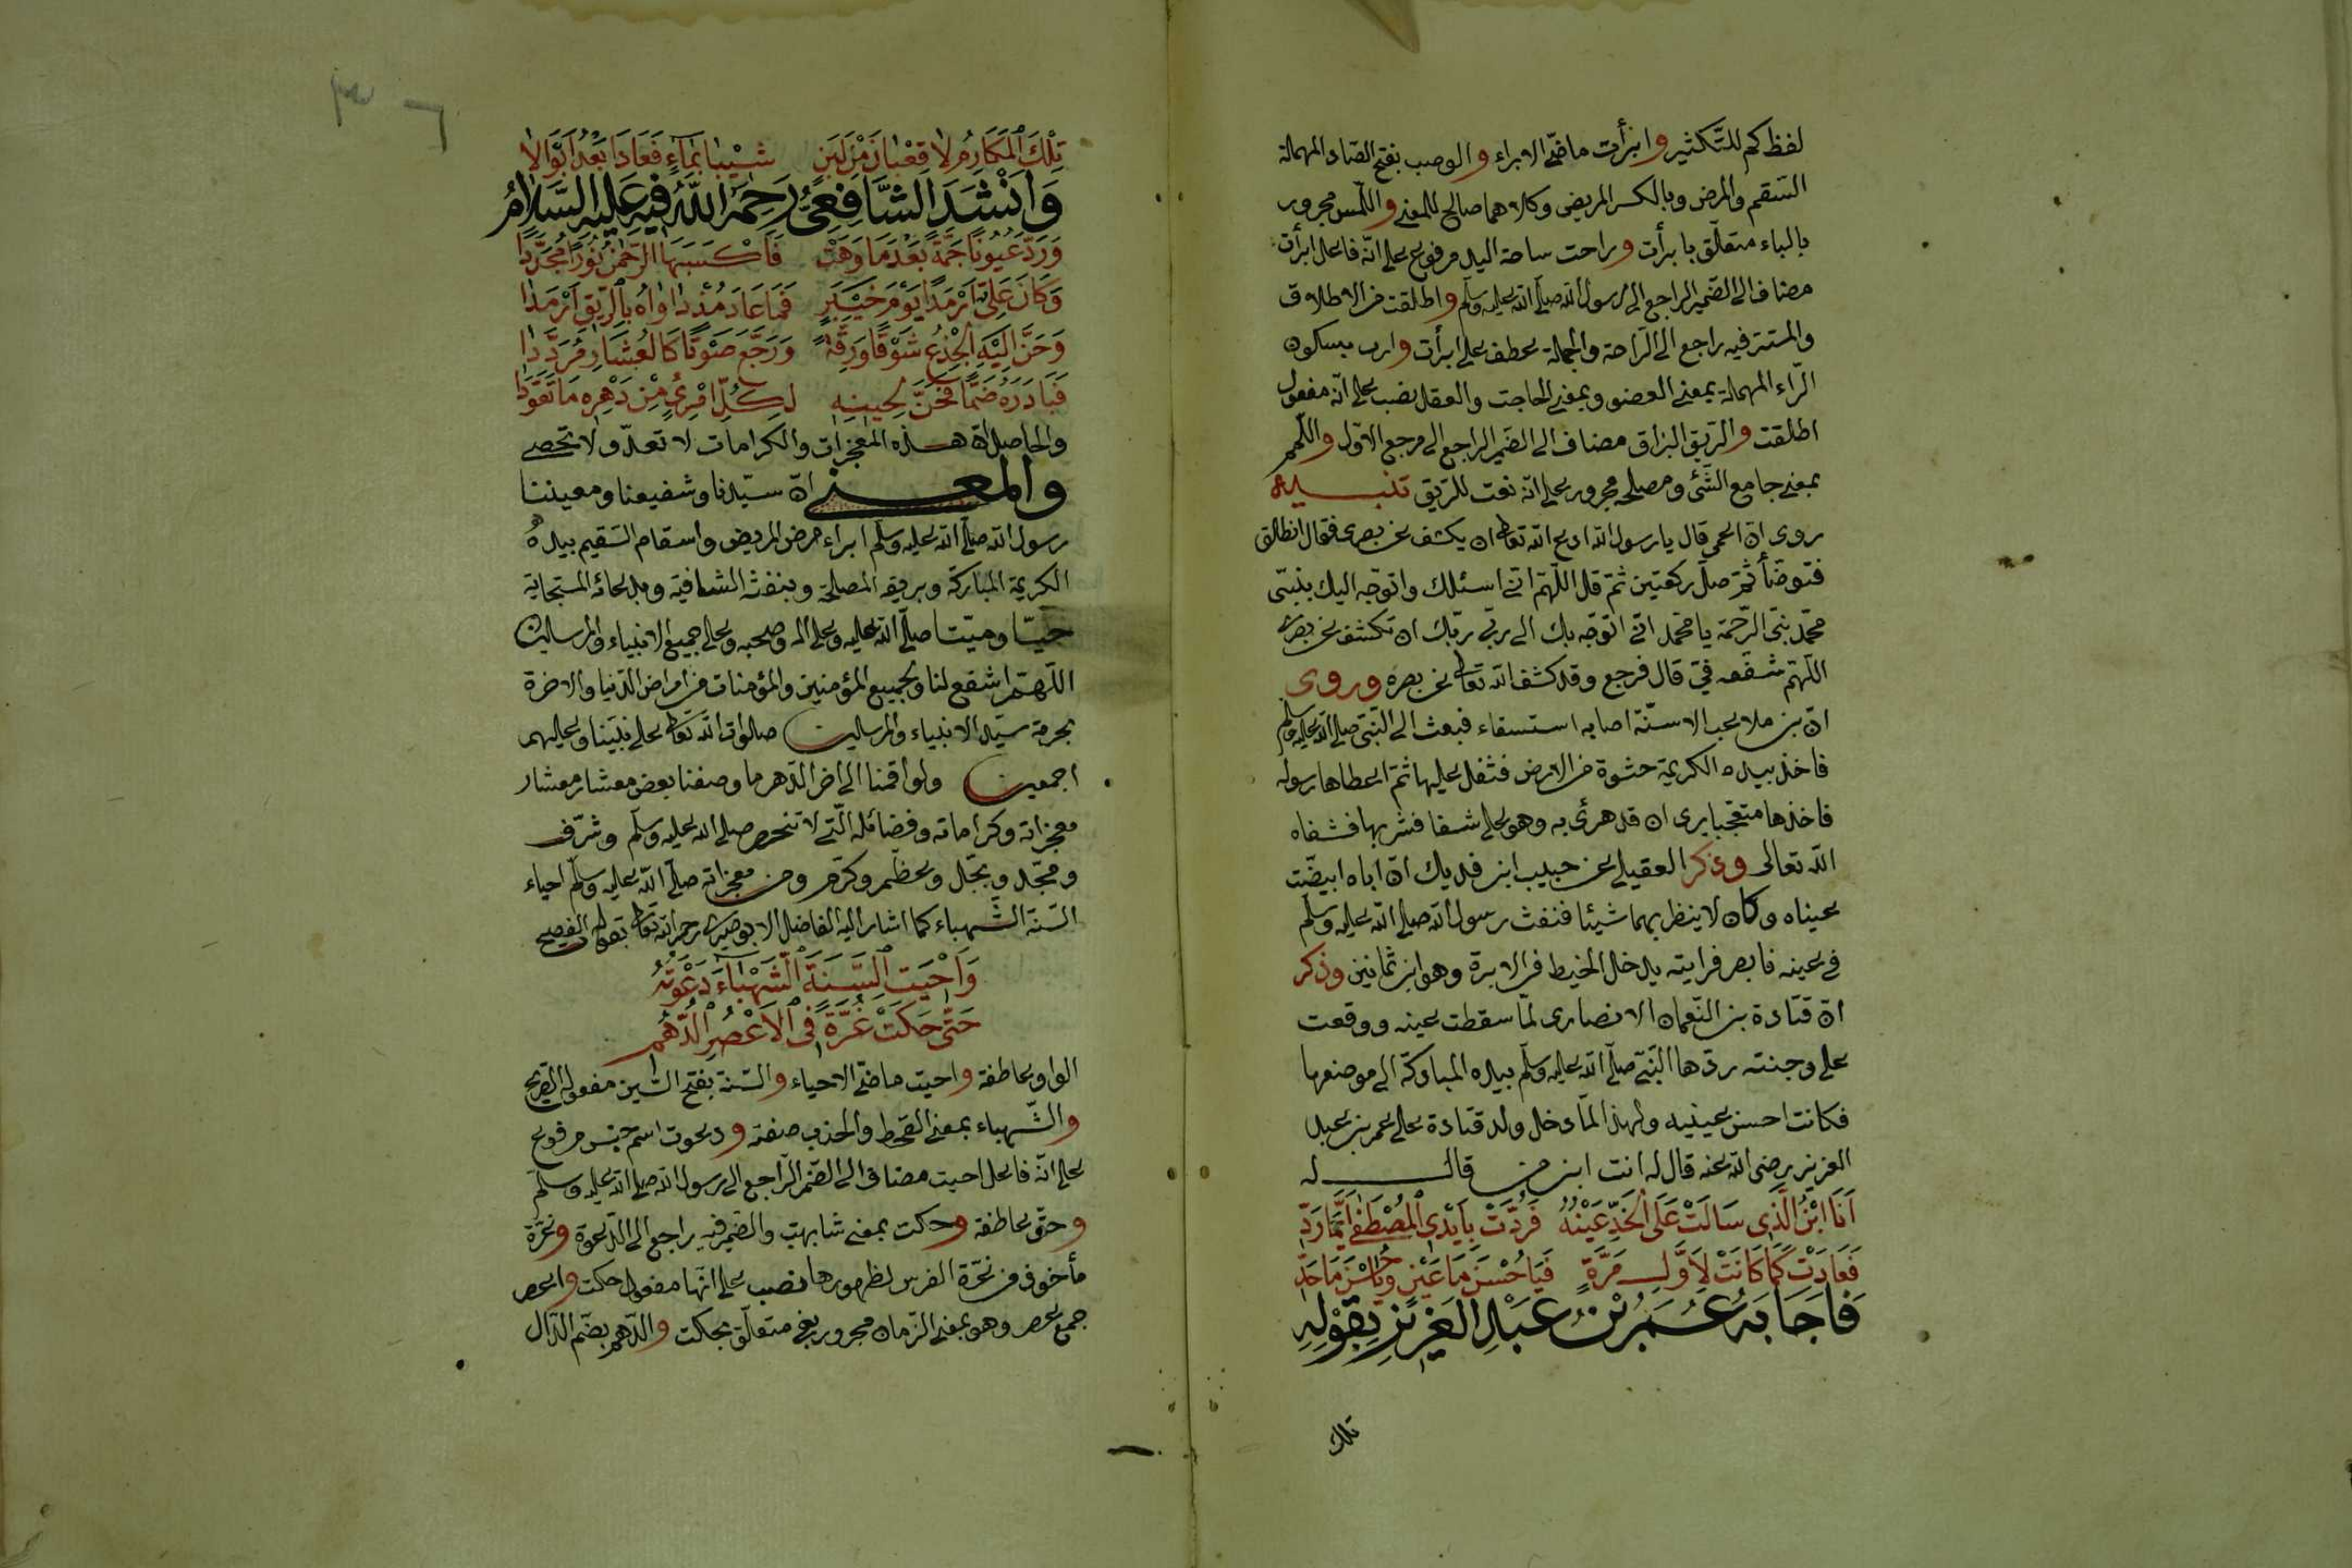 لفظ كم للتّكثير وابرأت ماضى الابراء والوصب بفتح الصّاد المهملة
السّقم والمرض وبالكسر المريض وكلاهما صالح للمعنى واللّمس مجرور
بالباء متعلّق بابرأت وراحت ساحة اليد مرفوع على انّه فاعل ابرأت
مضاف الى الضّمير الراجع الى رسول الله صلّى الله عليه وسلّم واطلقت من الاطلاق
والمستتر فيه راجع الى الرّاحة والجملة عطف على ابرأت وارب بسكون
الرّاء المهملة بمعنى العضو وبمعنى الحاجت والعقل نصب على انّه مفعول
اطلقت والرّيق البزاق مضاف الى الضّمير الراجع الى مرجع الاوّل واللّمم
بمعنى جامع الشّئ ومصلحه مجرور على انّه نعت للرّيق تنبيه
روى انّ اعمى قال يا رسول الله ادع الله تعالى ان يكشف عن بصرى فقال انطلق
فتوضّأ ثمّ صلّ ركعتين ثمّ قل اللّهمّ انّى اسئلك واتوجّه اليك بنبيّى
محمّد نبىّ الرّحمة يا محمّد انّى اتوجّه بك الى ربّى ربّك ان تكشف عن بصرى
اللّهمّ شفّعه فىّ قال فرجع وقد كشف الله تعالى عن بصره وروى
انّ بن ملاعب الاسنّة اصابه استسقاء فبعث الى النّبىّ صلى الله عليه وسلم
فاخذ بيده الكريمة حثوة من الارض فتفل عليها ثمّ اعطاها رسوله
فاخذها متعجّبا يرى ان قد هزئ به وهو على شفا فشربها فشفاه
الله تعالى وذكر العقيلى عن حبيب ابن فديك انّ اباه ابيضّت
عيناه وكان لا ينظر بهما شيئا فنفث رسول الله صلى الله عليه وسلّم
فى عينه فابصر فرايته يدخل الخيط فى الابرة وهو ابن ثمانين وذكر
انّ قتادة بن النّعمان الانصارى لمّا سقطت عينه ووقعت
على وجنته ردّها النّبىّ صلّى الله عليه وسلّم بيده المباركة الى موضعها
فكانت احسن عينيه ولهذا لمّا دخل ولد قتادة على عمر بن عبد
العزيز رضى الله عنه قال له انت ابن من قال له
اَنَا ابْنُ الَّذِى سَالَتْ عَلَى الْخَدِّ عَيْنُهُ فَرُدَّتْ بِاَيْدِى الْمُصْطَفٰى اَيَّمَا رَدٍّ
فَعَادَتْ كَمَا كَانَتْ لِاَوَّلِ مَرَّةٍ فَيَا حُسْنَ مَا عَيْنٍ وَيَا حُسْنَ مَا خَدٍّ
فَاَجَابَهُ عُمَرُ بْنُ عَبْدِ الْعَزِيزِ بِقَوْلِهِ
تلك
تِلْكَ الْمَكَارِمُ لَا قَعْبَانَ مِنْ لَبَنٍ شِيْبَا بِمَاءٍ فَعَادَا بَعْدُ اَبْوَالًا
وَاَنْشَدَ الشَّافِعِىُّ رَحِمَهُ اللهُ فِيهِ عَلَيْهِ السَّلَامُ
وَرَدَّ عُيُونًا جَمَّةً بَعْدَمَا وَهَتْ فَاَكْسَبَهَا الرَّحْمٰنُ نُورًا مُجَرَّدًا
وَكَانَ عَلِىٌّ اَرْمَدًا يَوْمَ خَيْبَرٍ فَمَا عَادَ مُذْ دَاوَاهُ بِالرِّيقِ اَرْمَدَا
وَحَنَّ اِلَيْهِ الْجِذْعُ شَوْقًا وَرِقَّةً وَرَجَّعَ صَوْتًا كَالْعِشَارِ مُرَدَّدَا
فَبَادَرَهُ ضَمًّا فَحَنَّ لِحِينِهِ لِكُلِّ امْرِئٍ مِنْ دَهْرِهِ مَا تَعَوَّدَا
والحاصل انّ هذه المعجزات والكرامات لا تعدّ ولا تحصى
والمعنى انّ سيّدنا وشفيعنا ومعيننا
رسول الله صلّى الله عليه وسلّم ابراء مرض المريض واسقام السّقيم بيده
الكريمة المباركة وبريقه المصلحة وبنفثه الشافية وبدعائه المستجابة
حيّا وميّتا صلّى الله عليه وعلى اله وصحبه وعلى جميع الانبياء والمرسلين
اللّهمّ اشفع لنا ولجميع المؤمنين والمؤمنات من امراض الدّنيا والاخرة
بحرمة سيّد الانبياء والمرسلين صلوات الله تعالى على نبيّنا وعليهم
اجمعين ولو اقمنا الى اخر الدّهر ما وصفنا بعض معشار معشار
معجزاته وكراماته وفضائله الّتى لا تنحصر صلى الله عليه وسلّم وشرّف
ومجّد وبجّل وعظّم وكرّم ومن معجزاته صلّى الله عليه وسلّم احياء
السّنة الشّهباء كما اشار اليه الفاضل الابوصيرى رحمه الله تعالى بقوله الفصيح
وَاَحْيَتِ السَّنَةَ الشَّهْبَاءَ دَعْوَتُهُ
حَتّٰى حَكَتْ غُرَّةً فِى الْاَعْصُرِ الدُّهُمِ
الواو عاطفة واحيت ماضى الاحياء والسّنة بفتح السّين مفعوله الصّريح
والشّهباء بمعنى القحط والجذب صفته ودعوت اسم جنس مرفوع
على انّه فاعل احيت مضاف الى الضّمير الرّاجع الى رسول الله صلى الله عليه وسلّم
وحتّى عاطفة وحكت بمعنى شابهت والضّمير فيه راجع الى الدّعوة وغرّة
مأخوذ من غرّة الفرس لظهورها نصب على انّها مفعول حكت واعصر
جمع عصر وهو بمعنى الزّمان مجرور بفى متعلّق بحكت والدّهم بضم الدّال